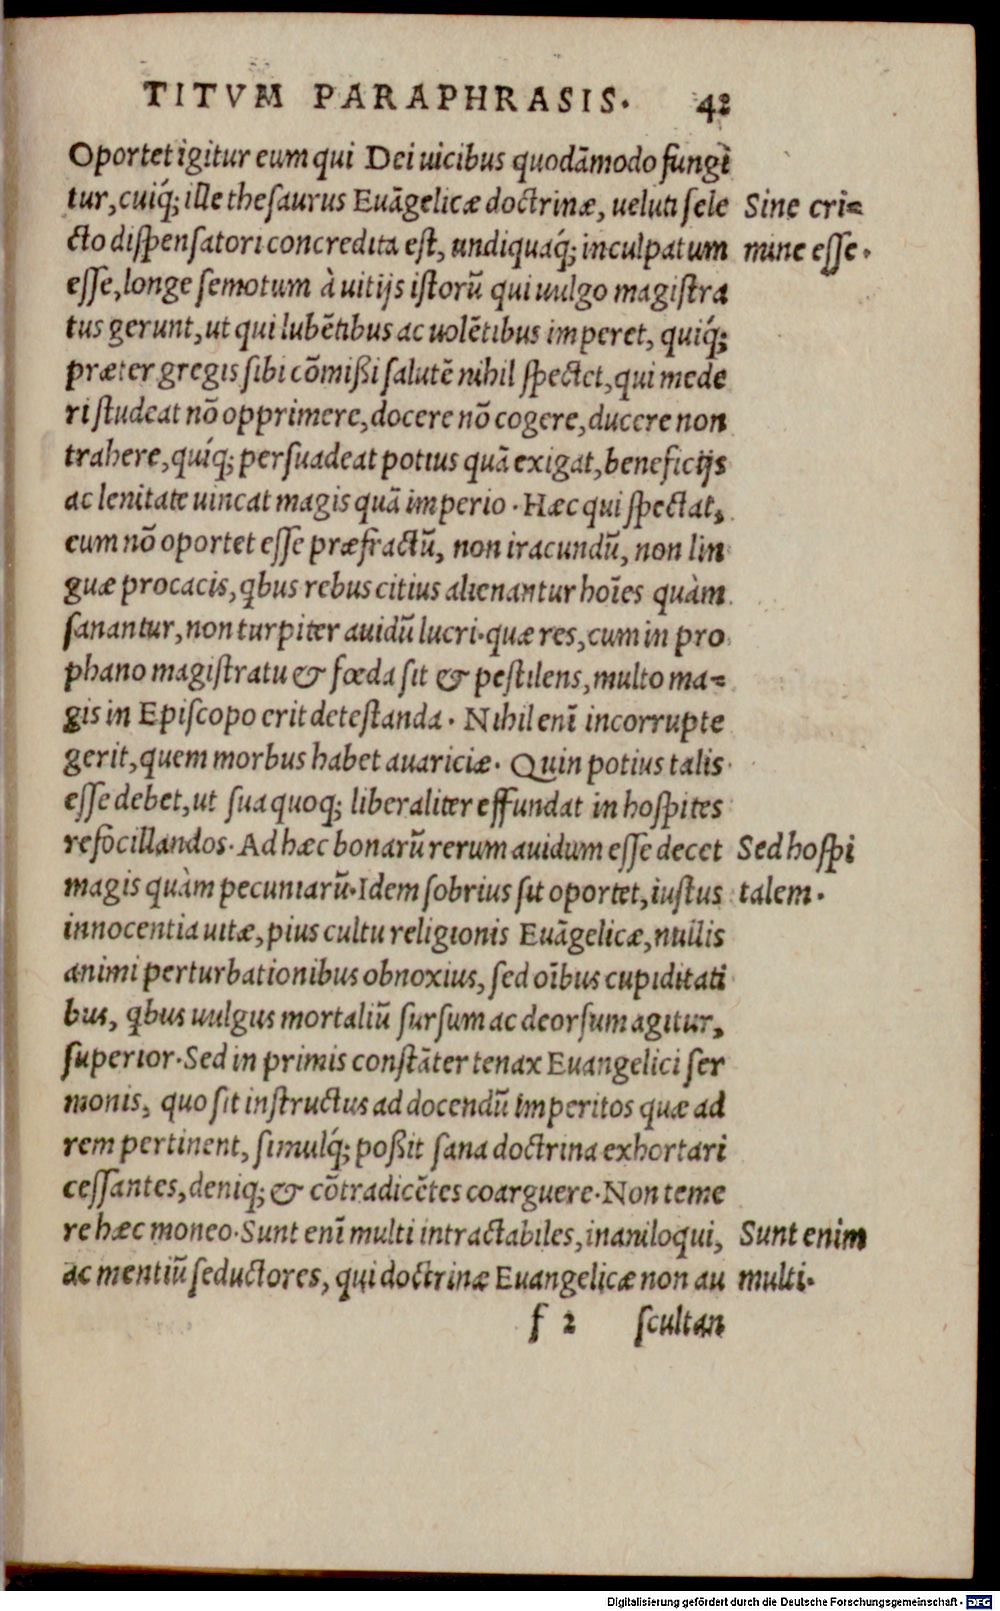 TITVM PARAPHRASIS. 42
Oportet igitur eum qui Dei uicibus quodāmodo fungi
tur, cuiq́; ille thesaurus Euāgelicæ doctrinæ, ueluti sele
cto dispensatori concredita est, undiquaq́; inculpatum
esse, longe semotum à uitijs istorū qui uulgo magistra
tus gerunt, ut qui lubētibus ac uolētibus imperet, quiq́;
præter gregis sibi cōmißi salutē nihil spectet, qui mede
ri studeat nō opprimere, docere nō cogere, ducere non
trahere, quiq́; persuadeat potius quā exigat, beneficijs
ac lenitate uincat magis quā imperio. Hæc qui spectat,
eum nō oportet esse præfractū, non iracundū, non lin
guæ procacis, qbus rebus citius alienantur hoīes quàm
sanantur, non turpiter auidū lucri. quæ res, cum in pro
phano magistratu & fœda sit & pestilens, multo ma=
gis in Episcopo erit detestanda. Nihil enī incorrupte
gerit, quem morbus habet auariciæ. Quin potius talis
esse debet, ut sua quoq; liberaliter effundat in hospites
refocillandos. Ad hæc bonarū rerum auidum esse decet
magis quàm pecuniarū. Idem sobrius sit oportet, iustus
innocentia uitæ, pius cultu religionis Euāgelicæ, nullis
animi perturbationibus obnoxius, sed oībus cupiditati
bus, qbus uulgus mortaliū sursum ac deorsum agitur,
superior. Sed in primis constāter tenax Euangelici ser
monis, quo sit instructus ad docendū imperitos quæ ad
rem pertinent, simulq́; poßit sana doctrina exhortari
cessantes, deniq; & cōtradicētes coarguere. Non teme
re hæc moneo. Sunt enī multi intractabiles, inaniloqui,
ac mentiū seductores, qui doctrinæ Euangelicæ non au
f 2 scultan
Sine cri=
mine esse.
Sed hospi
talem.
Sunt enim
multi.
Digitalisierung gefördert durch die Deutsche Forschungsgemeinschaft - DFG